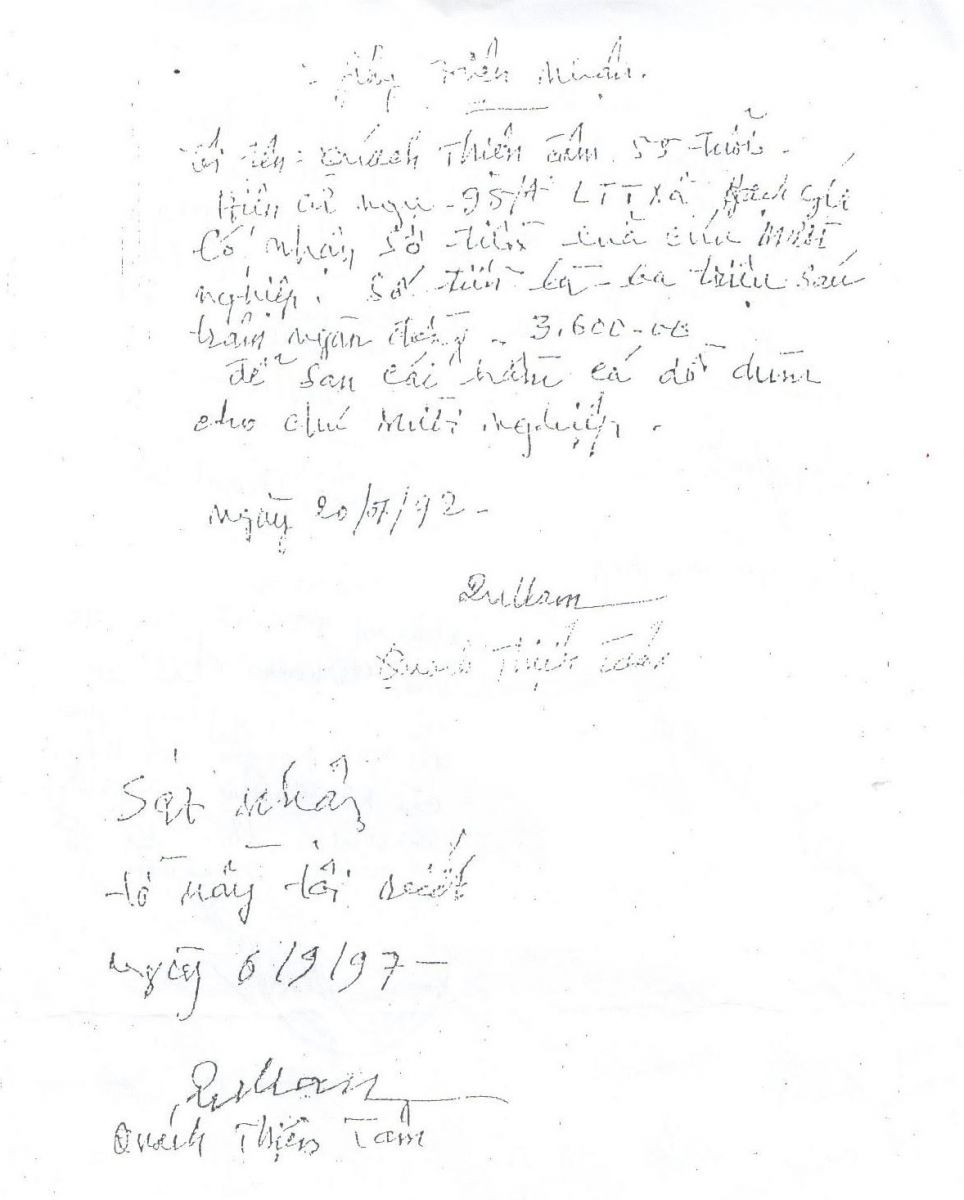 Giấy Biên Nhận.
Tôi tên: Quách Thiên Tâm 55 tuổi.
Hiện cư ngụ 95/A LTT Xã Rạch Giá
Có nhận số tiền của chú Mười
nghiệp. Số tiền là ba triệu sáu
trăm ngàn đồng - 3.600.00
để san cái hầm cá dồ dùm
cho chú Mười nghiệp.
ngày 20/ /92-
Quách Thiện Tâm
Sát nhận
tờ nầy tôi viết
ngày 6/9/97-
Quách Thiện Tâm